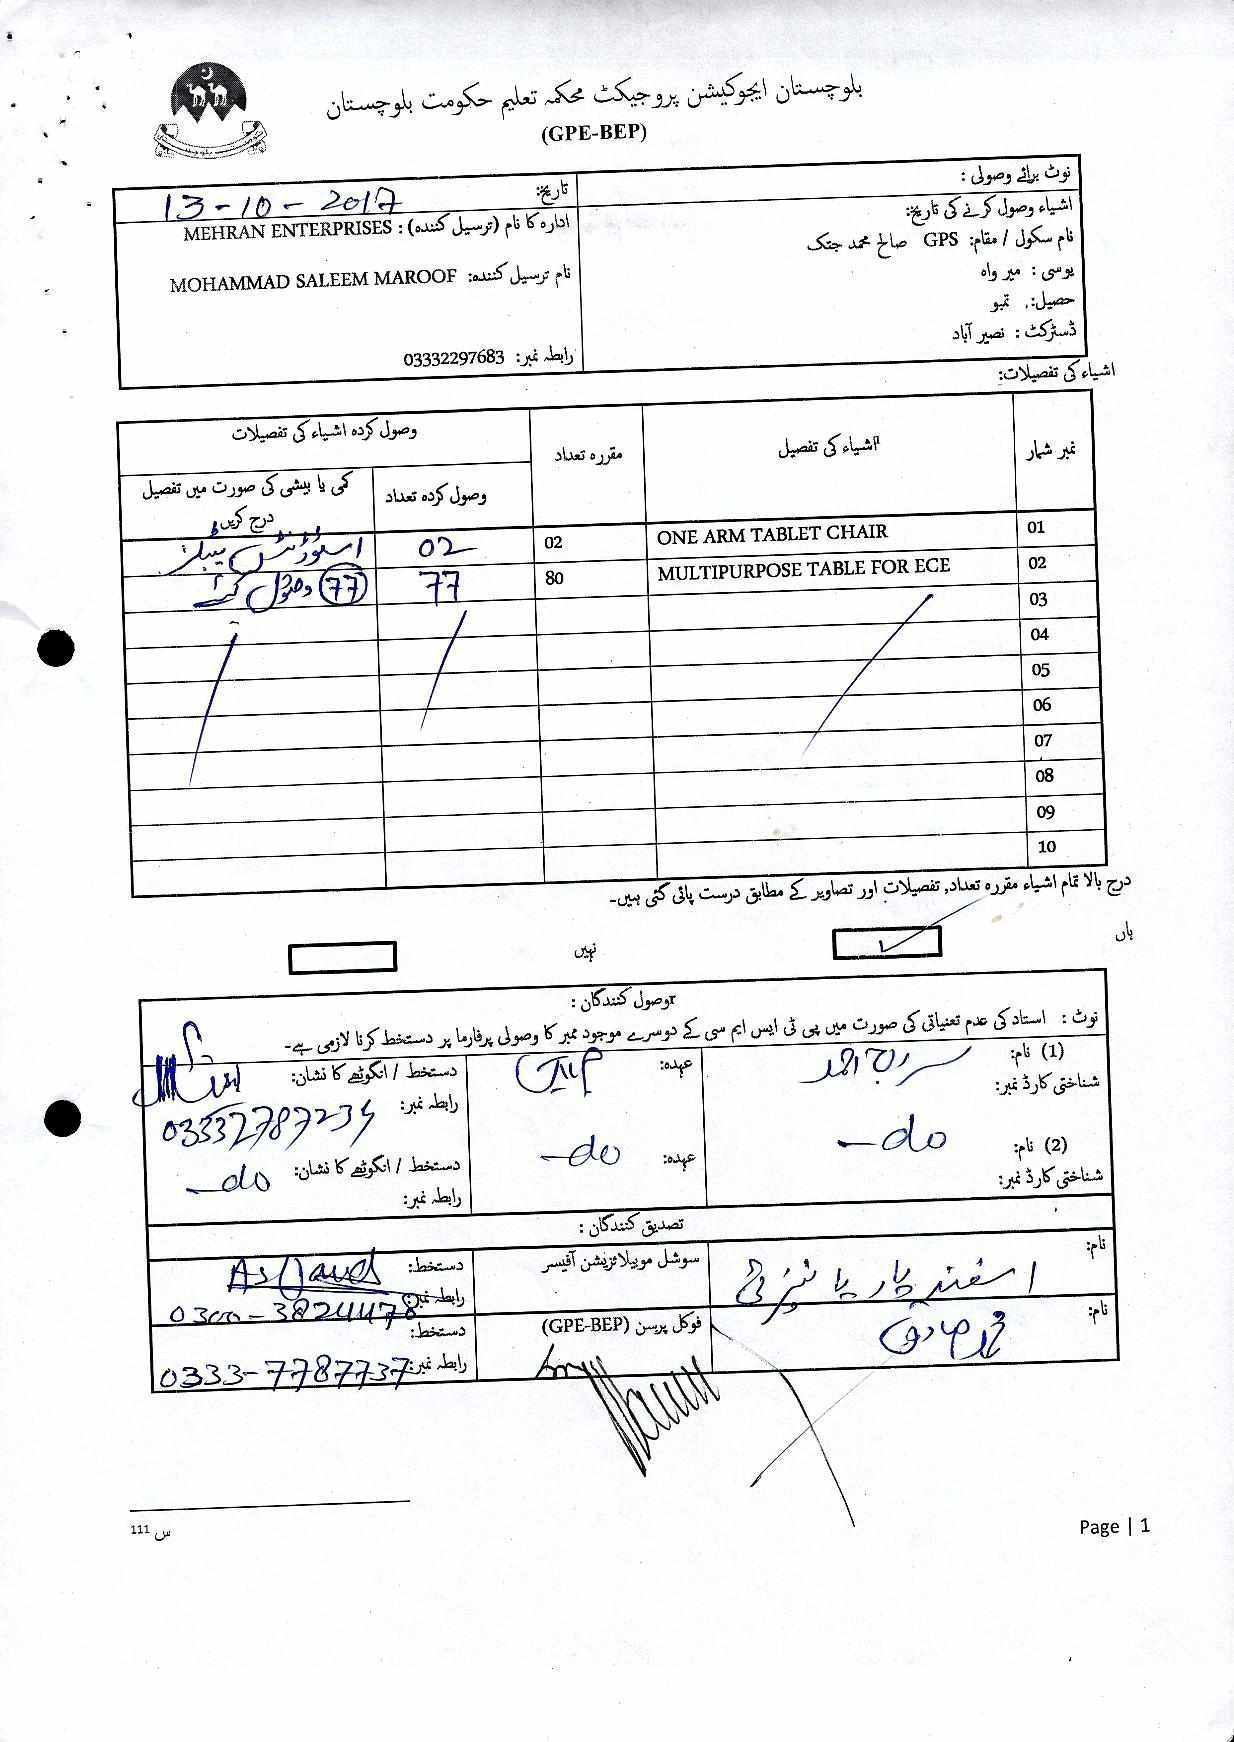 بلوچستان ایجوکیشن پروجیکٹ محکمہ تعلیم حکومت بلوچستان
(GPE-BEP)
نوٹ برائے وصولی :
اشیاء وصول کرنے کی تاریخ:
نام سکول / مقام: GPS صالح محمد جتک
یوسی : میر واہ
حصیل:. تمبو
ڈسٹرکٹ : نصیر آباد
تاریخ: 13-10-2017
ادارہ کا نام (ترسیل کنندہ) : MEHRAN ENTERPRISES
نام ترسیل کنندہ: MOHAMMAD SALEEM MAROOF
رابطہ نمبر: 03332297683
اشیاء کی تفصیلات:
نمبر شمار اشیاء کی تفصیل مقررہ تعداد وصول کردہ اشیاء کی تفصیلات
وصول کردہ تعداد کمی یا بیشی کی صورت میں تفصیل درج کریں
01 ONE ARM TABLET CHAIR 02 02
02 MULTIPURPOSE TABLE FOR ECE 80 77 (77) وصول کئے
03
04
05
06
07
08
09
10
درج بالا تمام اشیاء مقررہ تعداد, تفصیلات اور تصاویر کے مطابق درست پائی گئی ہیں۔
ہاں نہیں
وصول کنندگان :
نوٹ : استاد کی عدم تعیناتی کی صورت میں پی ٹی ایس ایم سی کے دوسرے موجود ممبر کا وصولی پرفارما پر دستخط کرنا لازمی ہے۔
(1) نام: عہدہ: دستخط / انگوٹھے کا نشان:
شناختی کارڈ نمبر: رابطہ نمبر: 03332787234
(2) نام: -do عہدہ: -do دستخط / انگوٹھے کا نشان: -do
شناختی کارڈ نمبر: رابطہ نمبر:
تصدیق کنندگان :
نام: اسفند یار پانیزئی سوشل موبیلائزیشن آفیسر دستخط:
رابطہ نمبر: 0300-3824478
نام: محمد صادق فوکل پرسن (GPE-BEP) دستخط:
رابطہ نمبر: 0333-7787737
س 111
Page | 1